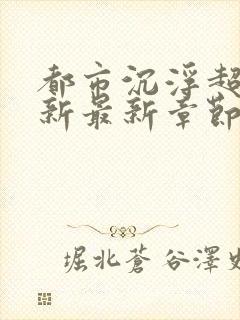 都市沉浮超
新最新章節
堀北蒼谷澤